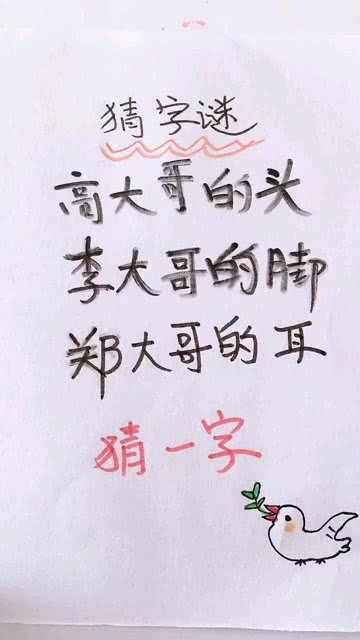 猜字谜
高大哥的头
李大哥的脚
郑大哥的耳
猜一字